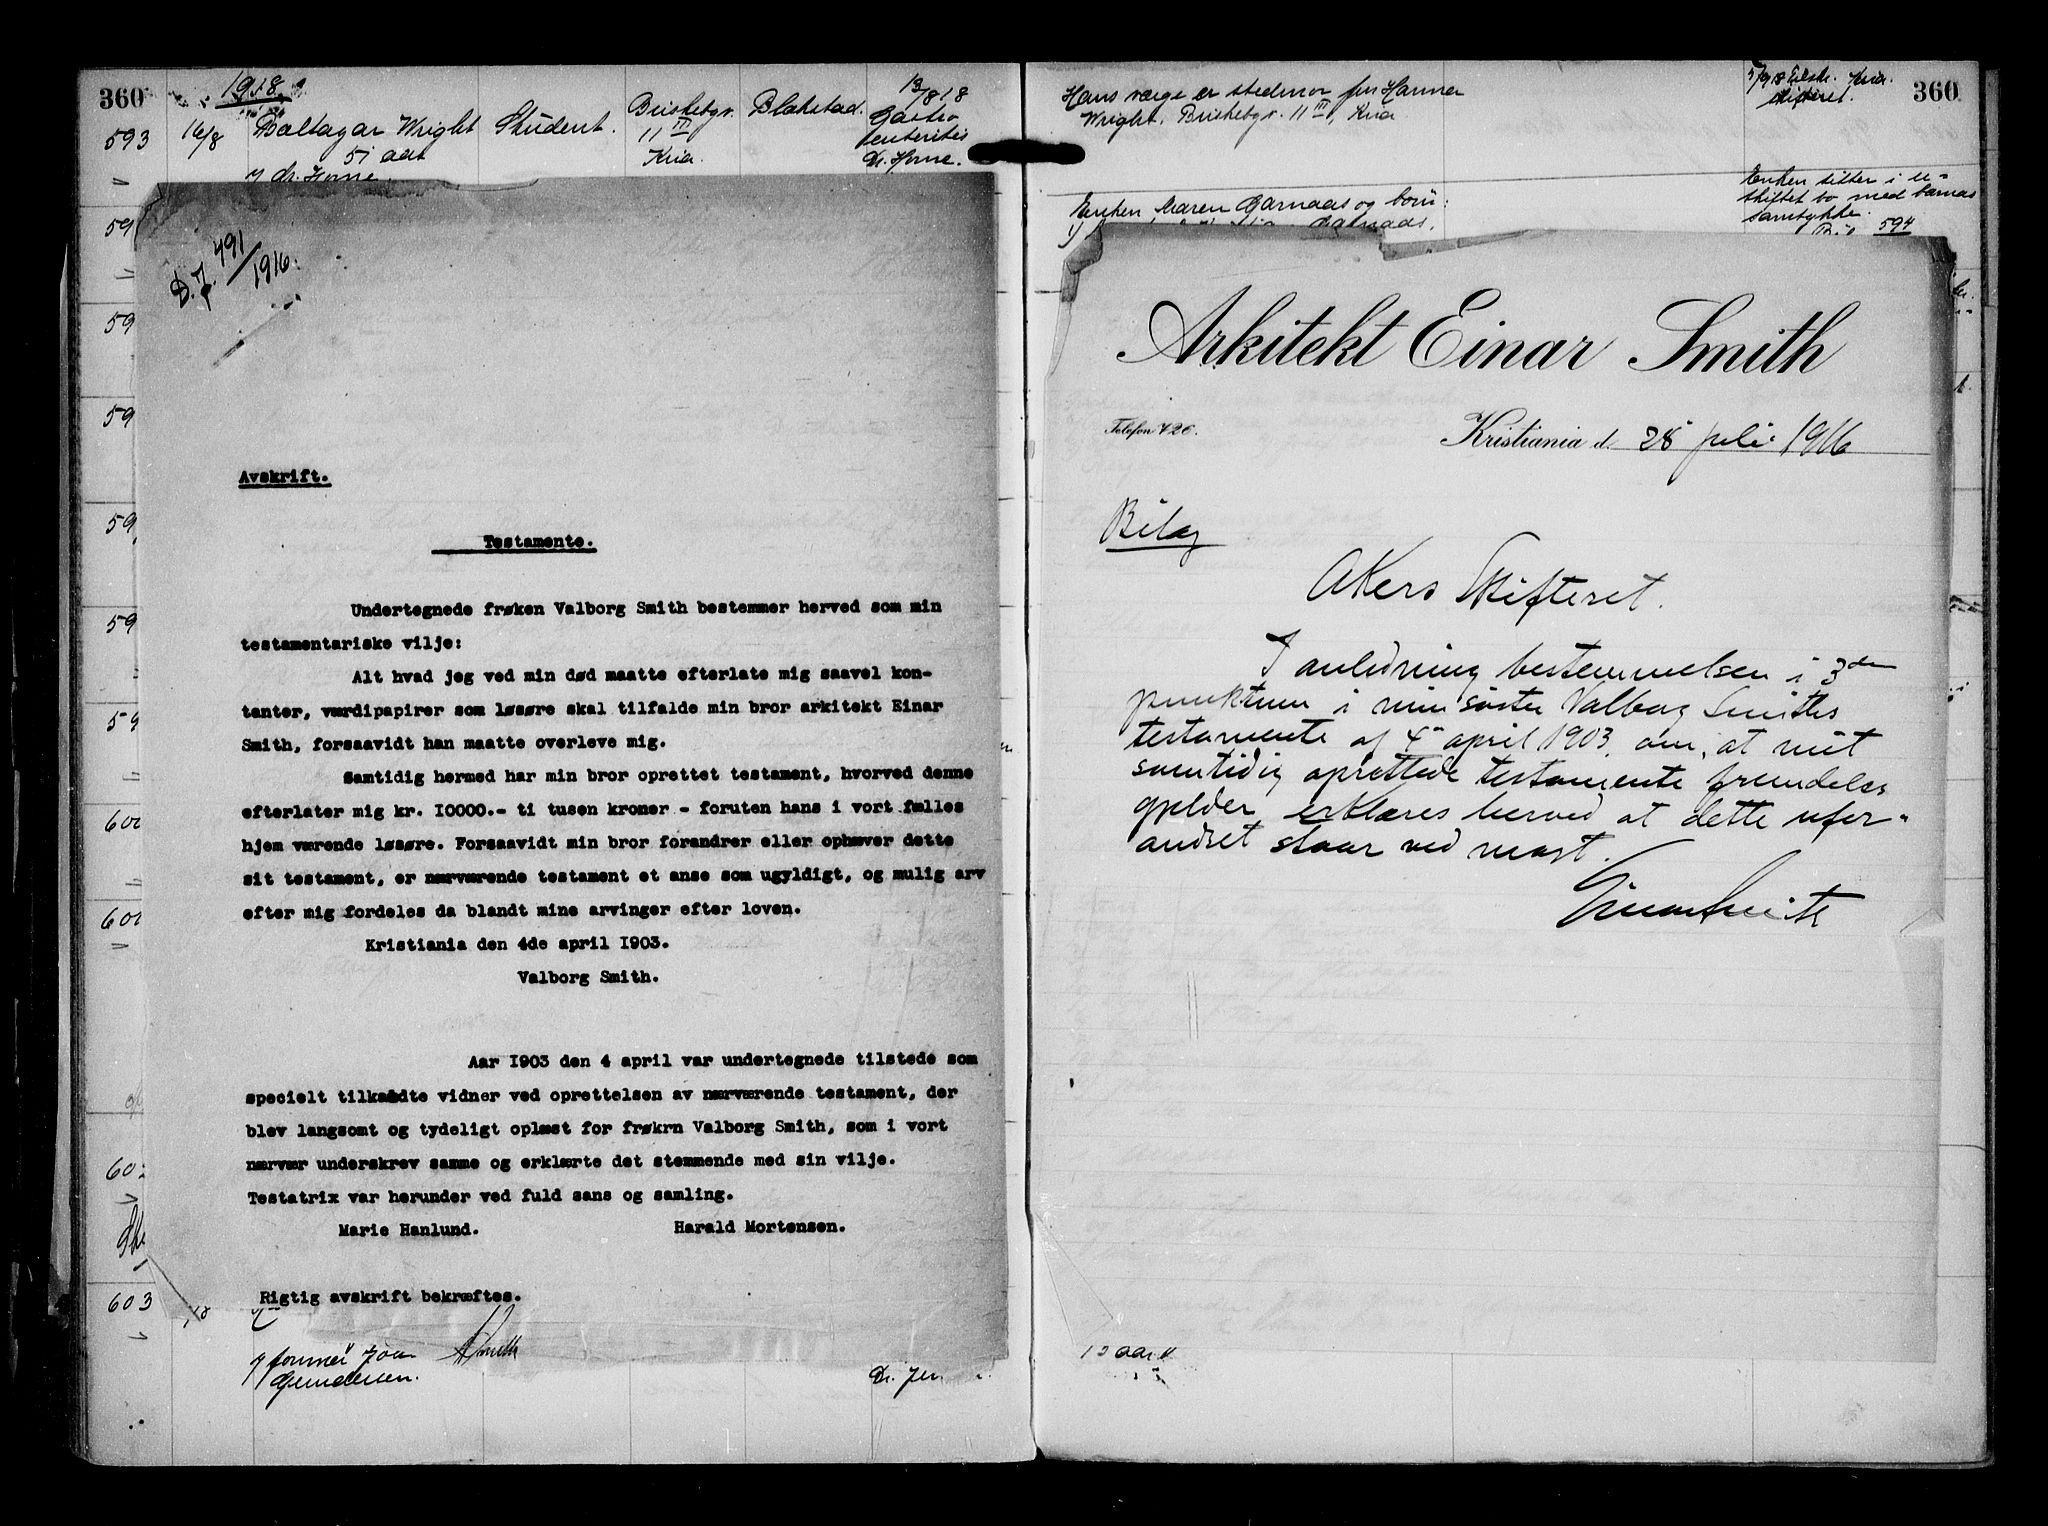 360
1918
593 16/8 Baltazar Wright Student. Briskebygt. Blakstad. 13/8 18
51 aar 11 III Gastro
Kria. enteritis
v/ dr. Horne. Dr. Horne.
59
59
59
59
59
59
600
600
60
603
D.J. 491/1916.
Avskrift.
Testamente.
Undertegnede frøken Valborg Smith bestemmer herved som min
testamentariske vilje:
Alt hvad jeg ved min død maatte efterlate mig saavel kon-
tanter, værdipapirer som løsøre skal tilfalde min bror arkitekt Einar
Smith, forsaavidt han maatte overleve mig.
Samtidig hermed har min bror oprettet testament, hvorved denne
efterlater mig kr. 10000.- ti tusen kroner - foruten hans i vort fælles
hjem værende løsøre. Forsaavidt min bror forandrer eller ophæver dette
sit testament, er nærværende testament et anse som ugyldigt, og mulig arv
efter mig fordeles da blandt mine arvinger efter loven.
Kristiania den 4de april 1903.
Valborg Smith.
Aar 1903 den 4 april var undertegnede tilstede som
specielt tilkaldte vidner ved oprettelsen av nærværende testament, der
blev langsomt og tydeligt oplæst for frøkrn Valborg Smith, som i vort
nærvær underskrev samme og erklærte det stemmende med sin vilje.
Testatrix var herunder ved fuld sans og samling.
Marie Hanlund. Harald Mortensen.
Rigtig avskrift bekræftes.
Gundersen.
Dr.
360
Hans værge er stedmor fru Hanna
Wright, Briskebygt. 11 III, Kria
5/9 18 Eilsk. Kria.
skifteret.
Enken Maren Garnaas og born:
Garnaas,
Enken sitter i u-
skiftet bo med barnas
samtykke.
594
Arkitekt Einar Smith
Telefon 726.
Kristiania d. 28 juli 1916
Bilag
Akers Skifteret.
I anledning bestemmelsen i 3den
punktum i min søster Valborg Smiths
testamente af 4de april 1903, om, at mit
samtidig oprettede testamente fremdeles
gjelder, erklæres herved at dette ufor-
andret staar ved magt.
Einar Smith
13 aar